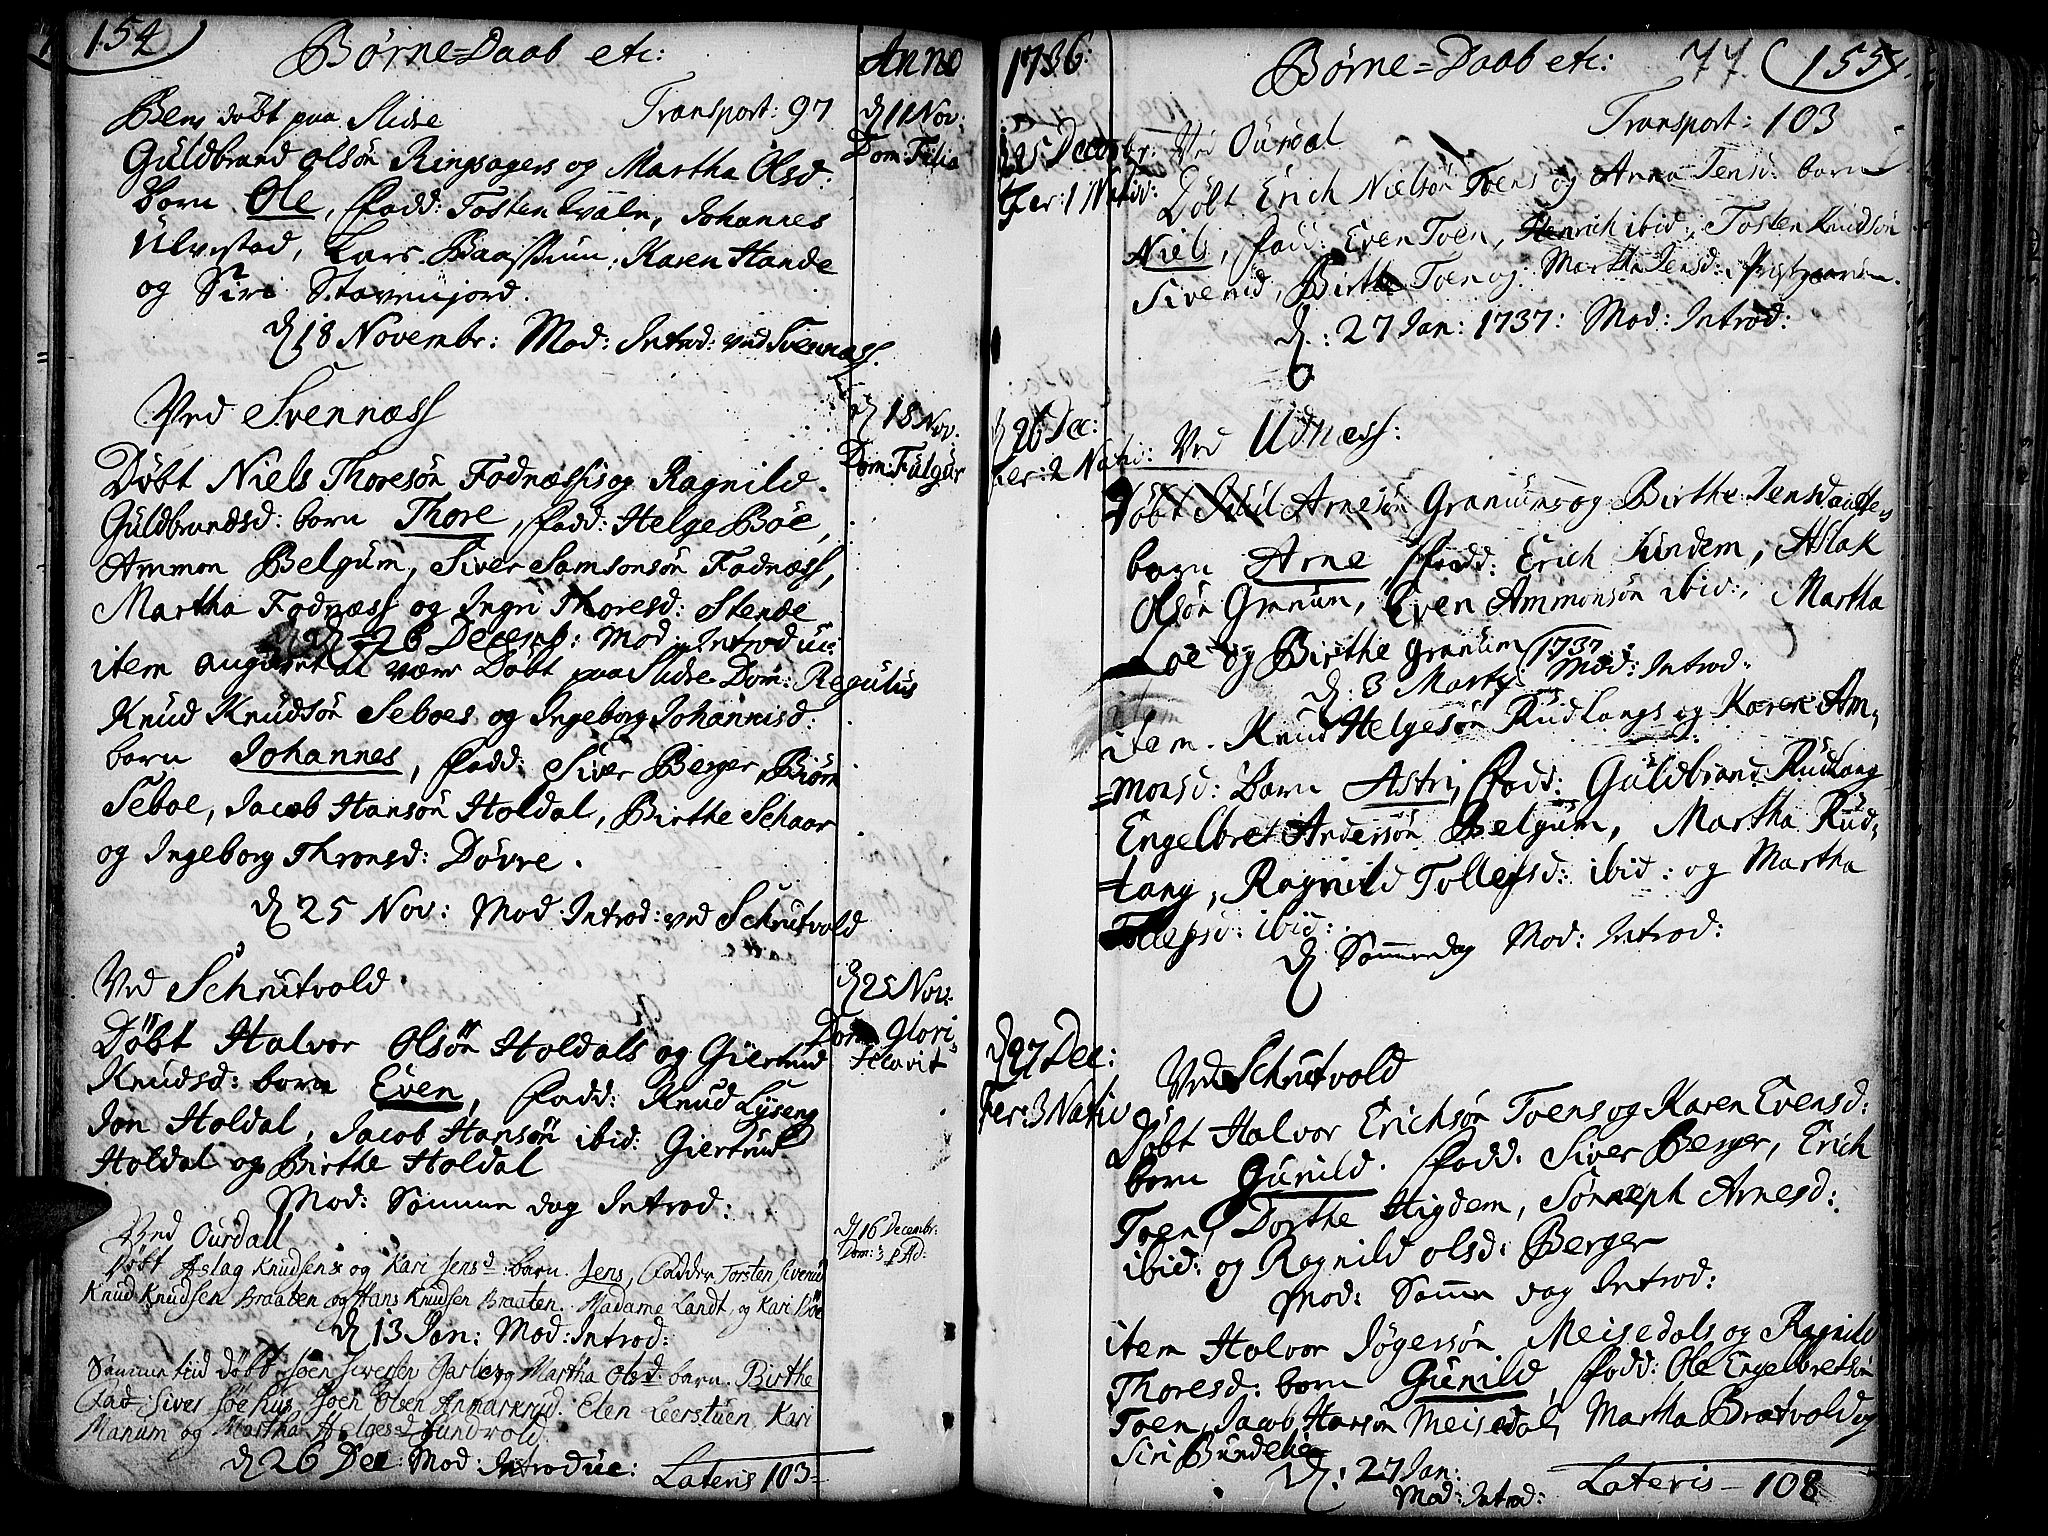 154
Børne=Daab etc:
Anno
Bem døbt paa Slidre Transport: 97
d 11 Nov:
Dom: Filia
Guldbrand Olsøn Ringsagers og Martha Olsd:
barn Ole, fadd: Tosten Qvaln, Johannes
Ulvestad, Lars Baasthuun, Karen Hande
og Siri Stavenjord.
d 18 Novembr: Mod: Introd: ved Svennæss.
Ved Svennæss
d 18 Nov:
Dom: Fulgur
Døbt Niels Thoresøn Fodnæssis og Ragnild
Guldbrandsd: barn Thore, fadd: Helge Böe,
Ammon Belgum, Siver Samsonsøn Fodnæss,
Martha Fodnæss og Ingri Thoresd: Stende
d 26 Decemb: Mod: Introduc:
item angivet at være Døbt paa Slidre Dom: Regulus
Knud Knudsøn Seboes og Ingeborg Johannisd:
barn Johannes, fadd: Siver Berger, Biørn
Seboe, Jacob Hansøn Holdal, Birthe Schaar
og Ingeborg Thronsd: Døvre.
d 25 Nov: Mod: Introd: ved Schrutvold
Ved Schrutvold
d 25 Nov:
Dom: Glori-
ficavit
Døbt Halvor Olsøn Holdals og Giertrud
Knudsd: barn Even, fadd: Knud Lyseng
Jon Holdal, Jacob Hansøn ibid: Giertrud
Holdal og Birthe Holdal
Mod: Samme dag Introd:
Ved Ourdall
d 16 Decembr:
Dom: 3 Ad:
Døbt Aslag Knudsens og Kari Jensd: barn Jens, Fadder Torsten Sivenud
Knud Knudsen Braaten og Hans Knudsen Braaten. Madame Landt, og Kari Böe
d 13 Jan: Mod: Introd:
Samme tiid døbt Joen Siversen og Martha Olsd: barn Birthe
Fad: Siver Joen Olsen Anmarkrud. Elen Leerstuen, Kari
Manum og Martha Helgesd Sundvold.
d 26 Dec: Mod: Introduc: Lateris 103
1736:
Børne=Daab etc: 77 155
Transport: 103
d 25 Decembr: Ved Ourdal
Fer: 1 Nativ:
Døbt Erich Nielsøn Toens og Anna Jensd: barn
Niels, fadd: Even Toen, Henrich ibid:, Tosten Knudsøn
Sivenud, Birthe Toen og Martha Jensd:
d: 27 Jan: 1737: Mod: Introd:
d 26 Dec:
Fer: 2 Nativ: Ved Udnæss:
Døbt Arnesøn Granums og Birthe Jensdaatters
barn Arne, fadd: Erich Sundem, Aslak
Olsøn Granum, Even Ammonsøn ibid:, Martha
Loe og Birthe Granum
d: 3 Martij 1737 Mod: Introd:
item. Knud Helgesøn Rudlangs og Karen Am-
=monsd: Barn Astri, fadd: Guldbrand Rudlang
Engelbret Andersøn Belgum, Martha Rud-
=lang, Ragnild Tollefsd: ibid: og Martha
Tollefsd: ibid:
d Sammedag Mod: Introd:
d 27 Dec:
Fer: 3 Nativ
Ved Schrutvold
Døbt Halvor Erichsøn Toens og Karen Evensd:
barn Gunild. fadd. Siver Berger, Erich
Toen, Dorthe Higdem, Arnesd:
ibid: og Ragnild Olsd: Berger
Mod: Samme dag Introd:
item Halvor Jøgersøn Meisedals og Ragnild
Thoresd: barn Gunild, fadd: Ole Engelbretsøn
Toen, Jacob Hansøn Meisedal, Martha Bratvold og
Siri Bundelie
d: 27 Jan:
Mod: Introd: Lateris – 108